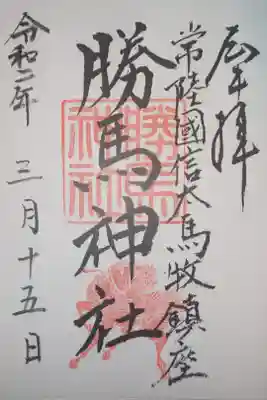 奉拝
常陸國信太馬牧鎮座
勝馬神社
令和二年 三月十五日